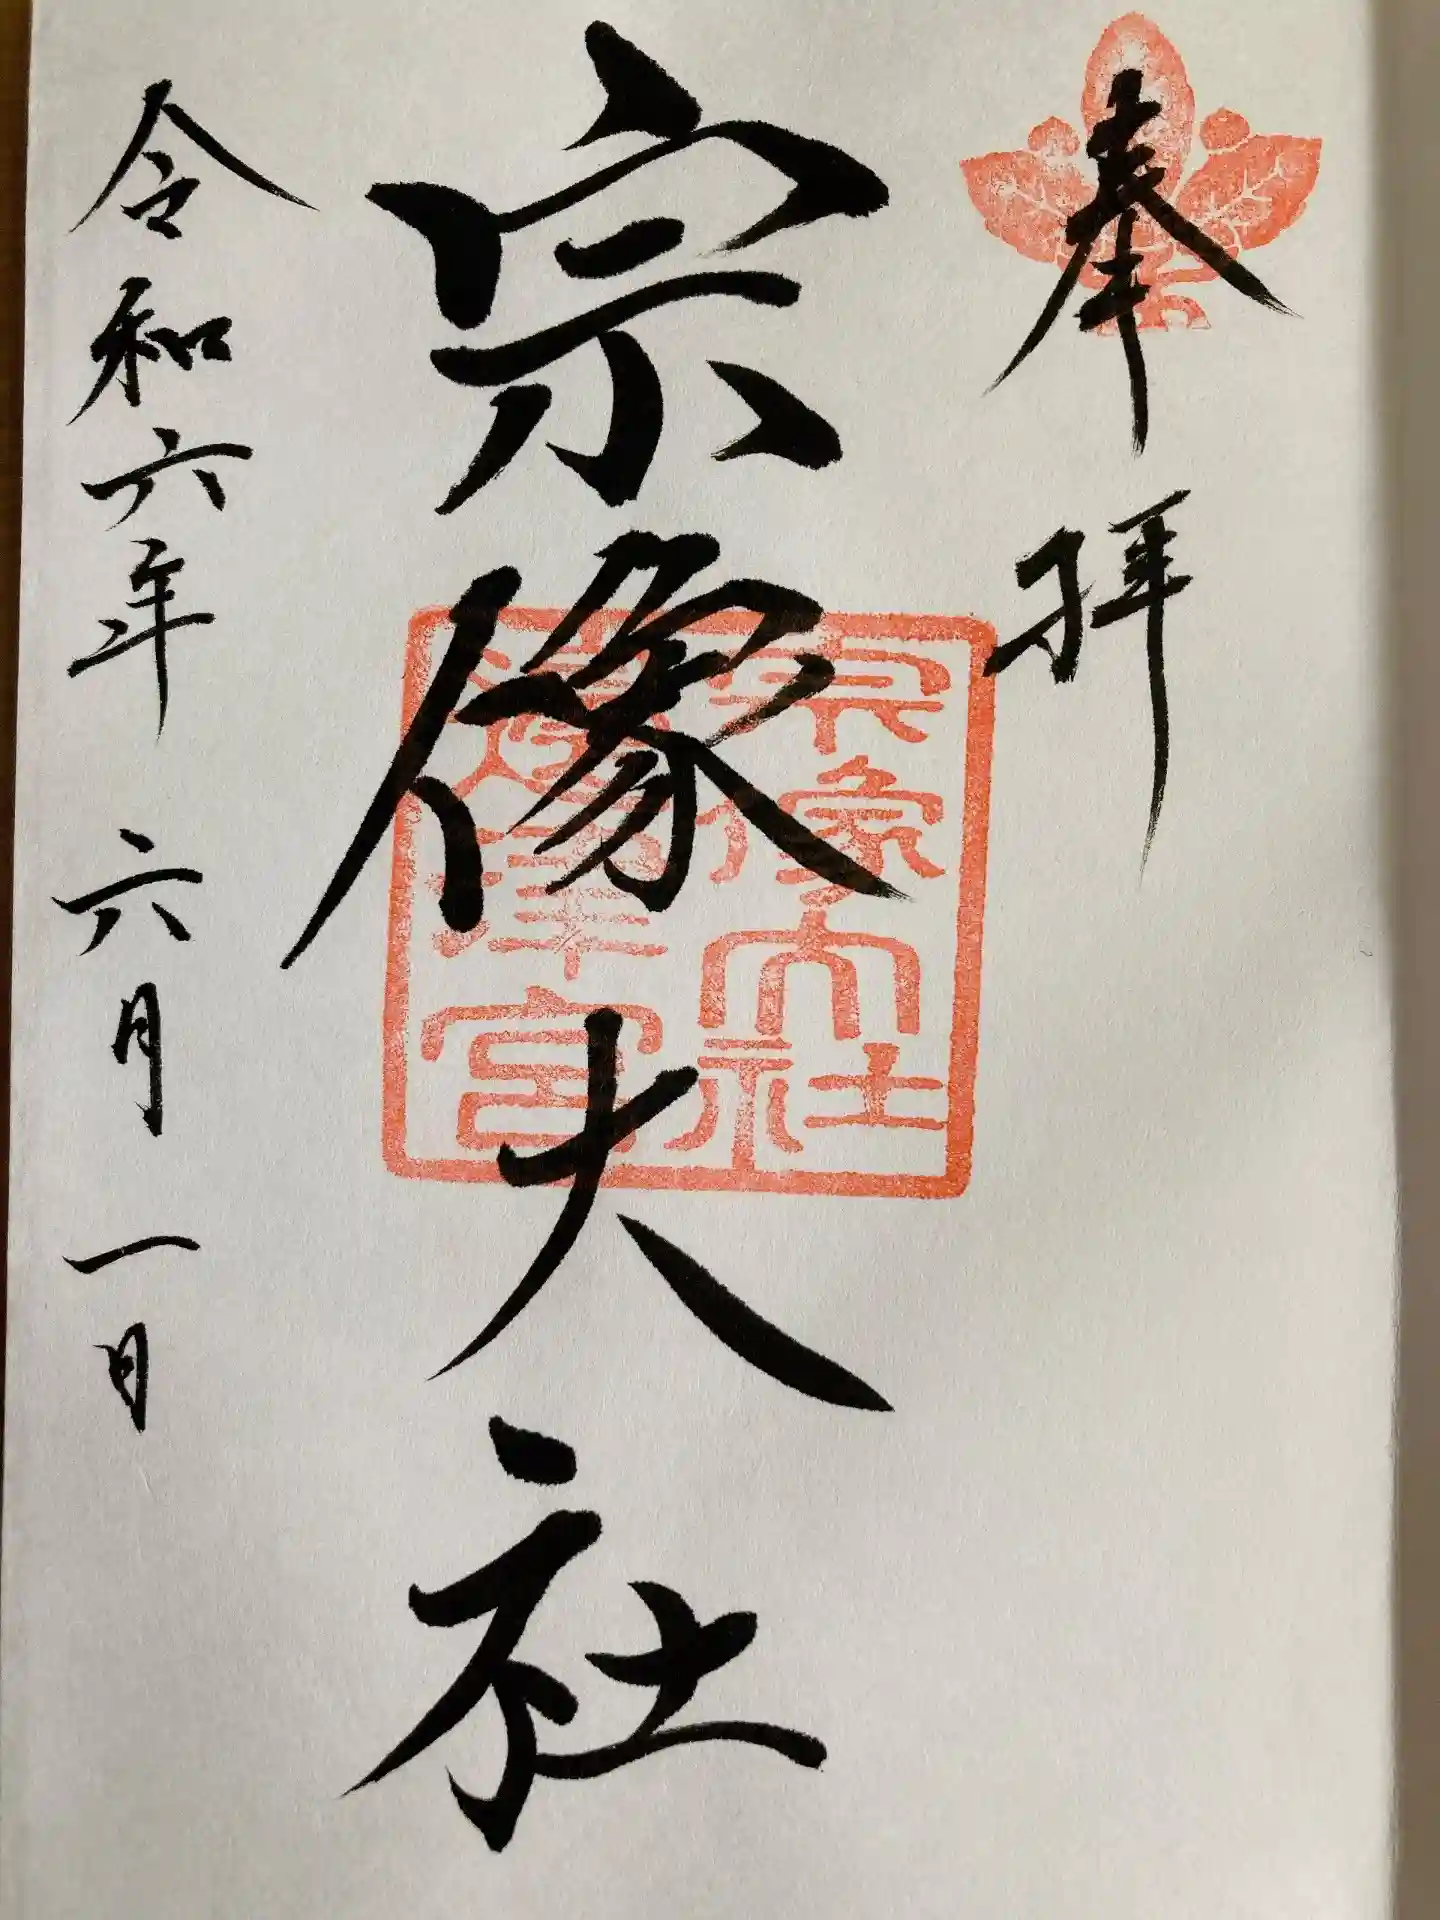 奉拝
宗像大社
宗像大社
邊津宮
令和六年 六月 一日